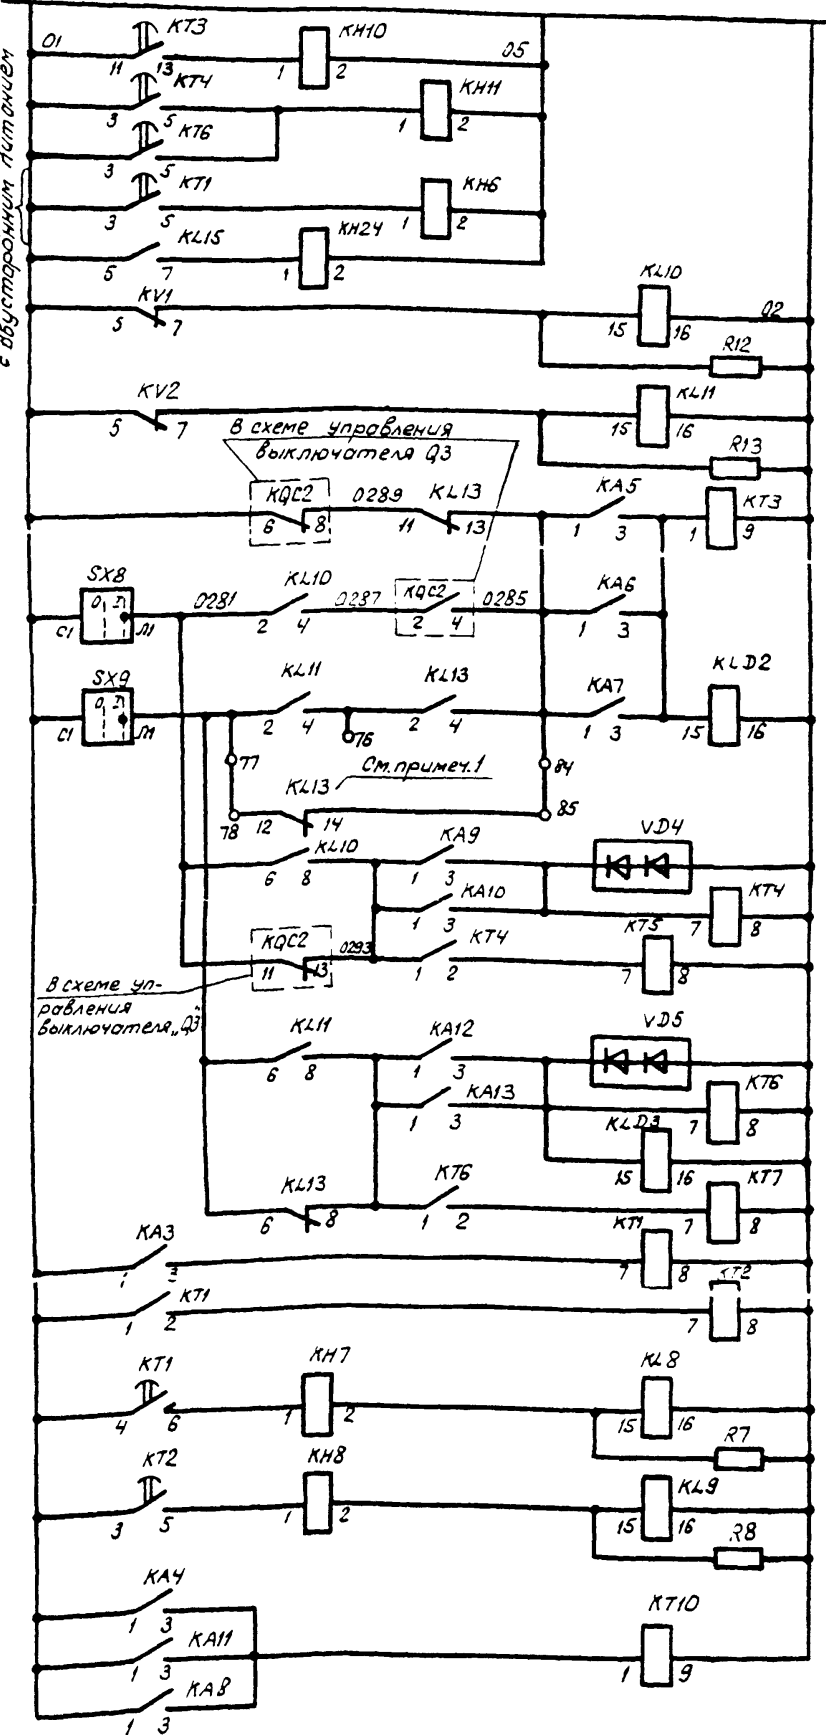 с двусторонним питанием
01
KT3
11
13
KH10
1
2
05
KT4
3
5
KH11
1
2
KT6
3
5
KT1
3
5
KH6
1
2
KL15
5
7
KH24
1
2
KV1
5
7
KL10
15
16
02
R12
KV2
5
7
KL11
15
16
R13
В схеме управления
выключателя Q3
KQC2
6
8
0289
KL13
11
13
KA5
1
3
KT3
1
9
SX8
O
Л
C1
Л1
0281
KL10
2
4
0287
KQC2
2
4
0285
KA6
1
3
SX9
O
Л
C1
Л1
KL11
2
4
76
KL13
2
4
KA7
1
3
KLD2
15
16
77
См. примеч. 1
84
KL13
78
12
14
85
KL10
6
8
KA9
1
3
VD4
KA10
1
3
KT4
7
8
KQC2
11
13
0293
KT4
1
2
KT5
7
8
В схеме уп-
равления
выключателя „Q3"
KL11
6
8
KA12
1
3
VD5
KA13
1
3
KT6
7
8
KLD3
15
16
KL13
6
8
KT6
1
2
KT7
7
8
KA3
1
3
KT1
7
8
KT1
1
2
KT2
7
8
KT1
4
6
KH7
1
2
KL8
15
16
R7
KT2
3
5
KH8
1
2
KL9
15
16
R8
KA4
1
3
KA11
1
3
KT10
1
9
KA8
1
3